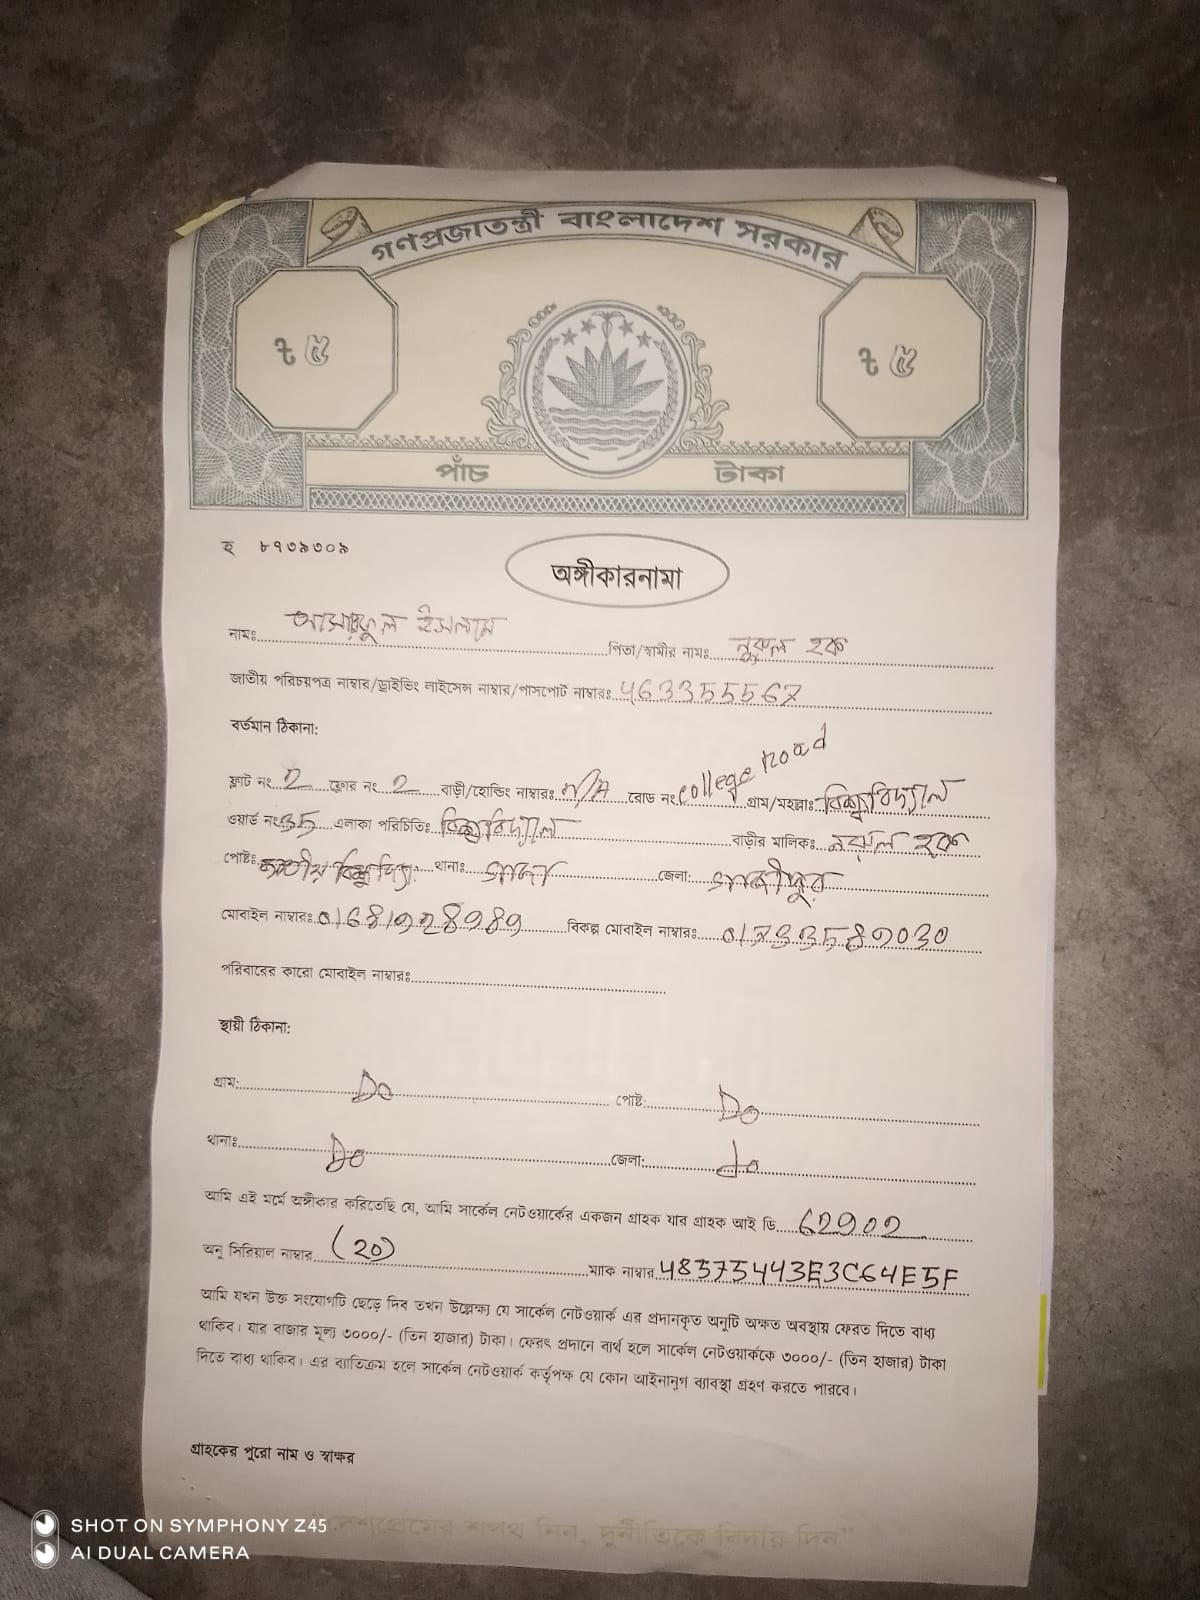 গণপ্রজাতন্ত্রী বাংলাদেশ সরকার
৳ ৫ ৳ ৫
পাঁচ টাকা
হ ৮৭৩৯৩০৯
অঙ্গীকারনামা
নামঃ ইসলাম পিতা/স্বামীর নামঃ নুরুল হক
জাতীয় পরিচয়পত্র নাম্বার/ড্রাইভিং লাইসেন্স নাম্বার/পাসপোর্ট নাম্বারঃ 4633555567
বর্তমান ঠিকানা:
ফ্লাট নং 2 ফ্লোর নং 2 বাড়ী/হোল্ডিং নাম্বারঃ N/A রোড নং college road গ্রাম/মহল্লাঃ বিশ্ববিদ্যাল
ওয়ার্ড নং 35 এলাকা পরিচিতিঃ বিশ্ববিদ্যাল বাড়ীর মালিকঃ হক
পোষ্টঃ জাতীয় থানাঃ গাজা জেলা: গাজীপুর
মোবাইল নাম্বারঃ বিকল্প মোবাইল নাম্বারঃ
পরিবারের কারো মোবাইল নাম্বারঃ
স্থায়ী ঠিকানা:
গ্রাম: Do পোষ্ট: Do
থানাঃ Do জেলা: do
আমি এই মর্মে অঙ্গীকার করিতেছি যে, আমি সার্কেল নেটওয়ার্কের একজন গ্রাহক যার গ্রাহক আই ডি 62902
অনু সিরিয়াল নাম্বার (20) ম্যাক নাম্বার 48575443E3C64E5F
আমি যখন উক্ত সংযোগটি ছেড়ে দিব তখন উল্লেক্ষ্য যে সার্কেল নেটওয়ার্ক এর প্রদানকৃত অনুটি অক্ষত অবস্থায় ফেরত দিতে বাধ্য
থাকিব। যার বাজার মূল্য ৩০০০/- (তিন হাজার) টাকা। ফেরৎ প্রদানে ব্যর্থ হলে সার্কেল নেটওয়ার্ককে ৩০০০/- (তিন হাজার) টাকা
দিতে বাধ্য থাকিব। এর ব্যতিক্রম হলে সার্কেল নেটওয়ার্ক কর্তৃপক্ষ যে কোন আইনানুগ ব্যাবস্থা গ্রহণ করতে পারবে।
গ্রাহকের পুরো নাম ও স্বাক্ষর
দেশপ্রেমের শপথ নিন, দুর্নীতিকে বিদায় দিন"
SHOT ON SYMPHONY Z45
AI DUAL CAMERA